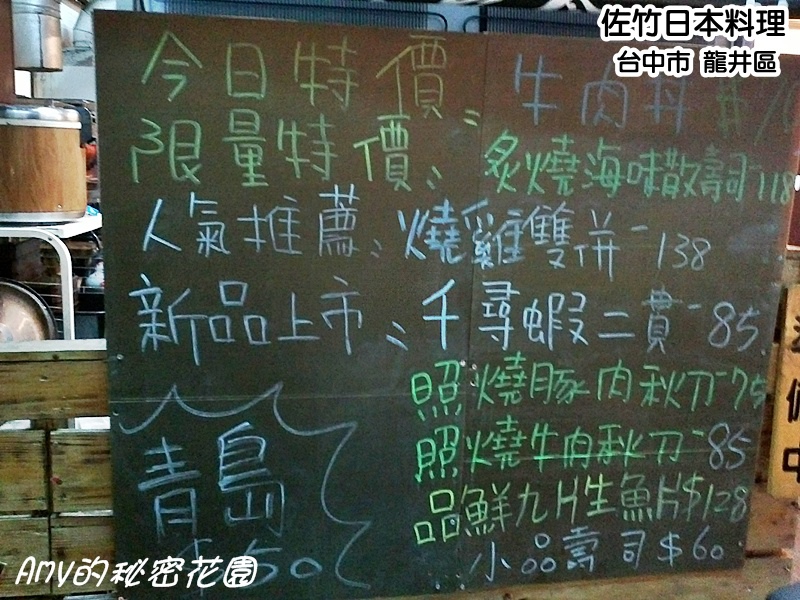 佐竹日本料理
台中市 龍井區
今日特價: 牛肉丼
限量特價: 炙燒海味散壽司 118
人氣推薦: 燒雞雙併-138
新品上市: 千尋蝦二貫-85
照燒豚肉秋刀-75
照燒牛肉秋刀-85
品鮮九片生魚片$128
小品壽司$60
青島
$50
Any的秘密花園